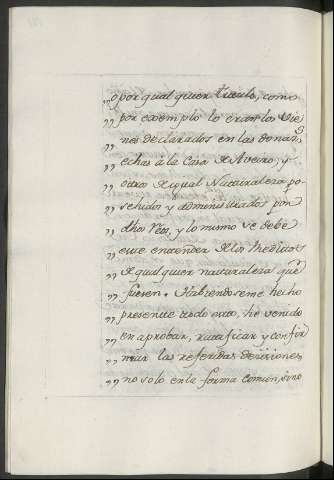 „ o por qual quier titulo, como
„ por exemplo lo eran los Vie
„ nes declarados en las donas
„ echas à la Casa de Aveiro; y
„ otros de igual Naturaleza po-
„ sehidos y administrados por
„ dhos Reos, y lo mismo se debe
„ entender de los
„ de qualquier naturaleza que
„ fuesen. Habiendoseme hecho
„ presente todo esto, he venido
„ en aprobar, ratificar y confir
„ mar las referidas decisiones
„ no solo en la forma comun, sino